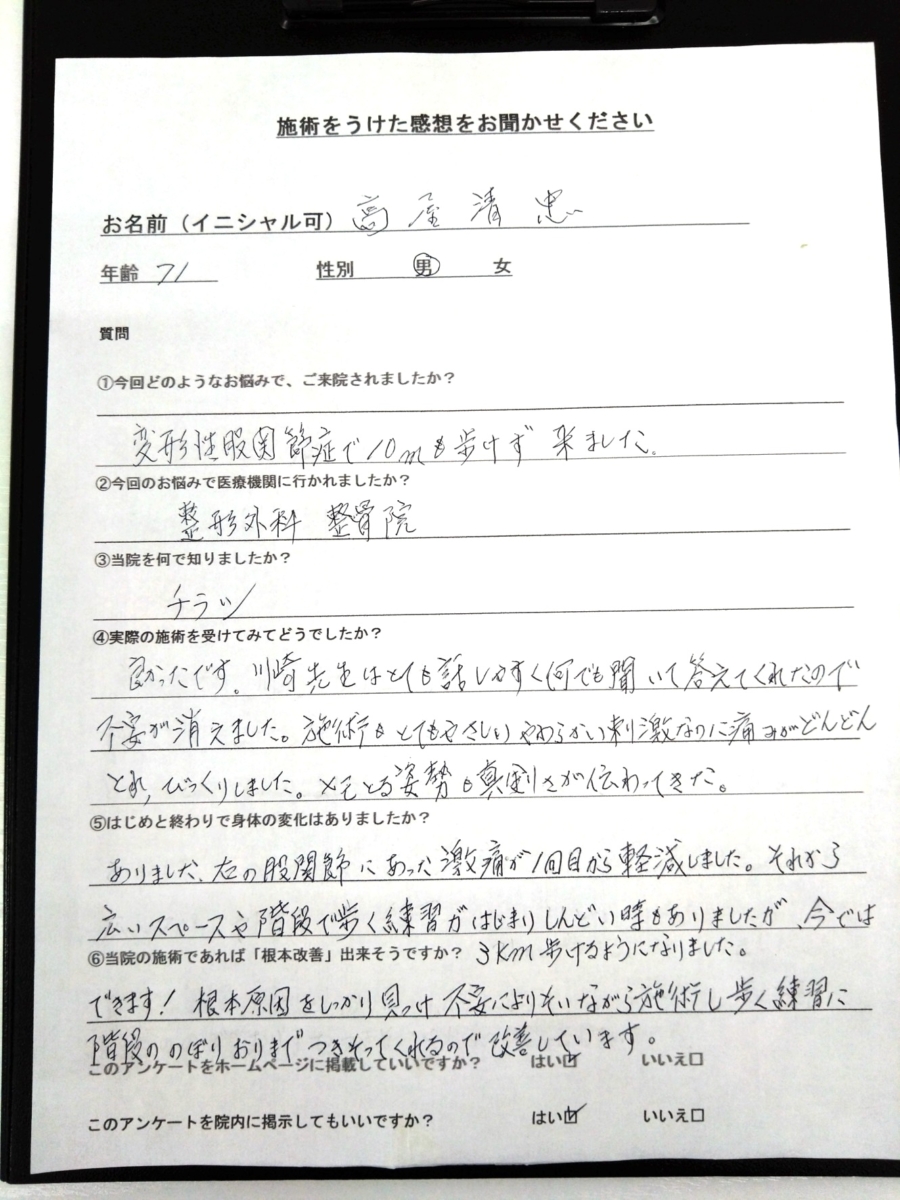 施術をうけた感想をお聞かせください
お名前（イニシャル可） 高屋清忠
年齢 71 性別 男 女
質問
①今回どのようなお悩みで、ご来院されましたか？
変形性股関節症で10mも歩けず 来ました.
②今回のお悩みで医療機関に行かれましたか？
整形外科 整骨院
③当院を何で知りましたか？
チラシ
④実際の施術を受けてみてどうでしたか？
良かったです。川崎先生はとても話しやすく何でも聞いて答えてくれたので
不安が消えました。施術もとてもやさしいやわらかい刺激なのに痛みがどんどん
とれ,びっくりしました。メモとる姿勢も真剣さが伝わってきた。
⑤はじめと終わりで身体の変化はありましたか？
ありました、左の股関節にあった激痛が1回目から軽減しました。それから
広いスペースや階段で歩く練習がはじまりしんどい時もありましたが、今では
3km歩けるようになりました。
⑥当院の施術であれば「根本改善」出来そうですか？
できます！ 根本原因をしっかり見つけ 不安によりそいながら施術し歩く練習に
階段ののぼりおりまでつきそってくれるので改善しています。
このアンケートをホームページに掲載していいですか？ はい☑ いいえ□
このアンケートを院内に掲示してもいいですか？ はい☑ いいえ□